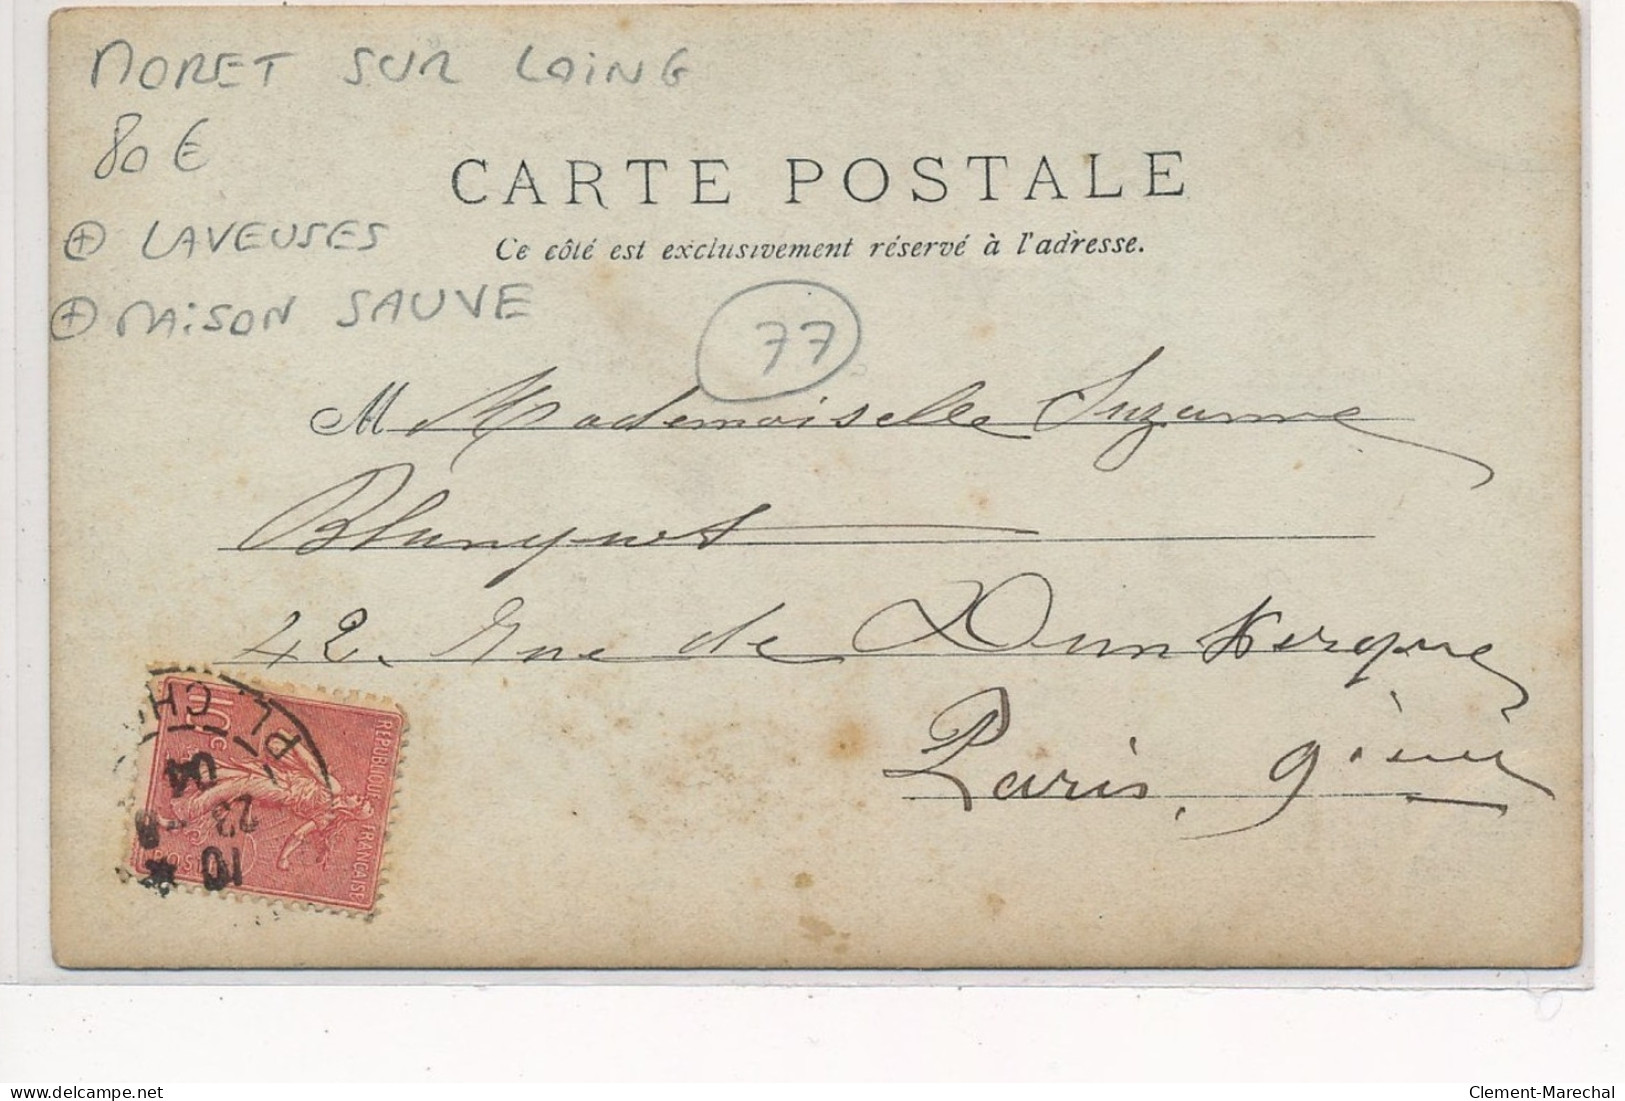 MORET SUR LOING
80 €
CARTE POSTALE
⊕ LAVEUSES
Ce côté est exclusivement réservé à l'adresse.
⊕ MAISON SAUVE
77
M Mademoiselle Suzanne
Blanquet
42. Rue de Dunkerque
Paris, 9ième
RÉPUBLIQUE FRANÇAISE
10 c
POSTES
PL. CH
10 *
23
04
Clement-Marechal